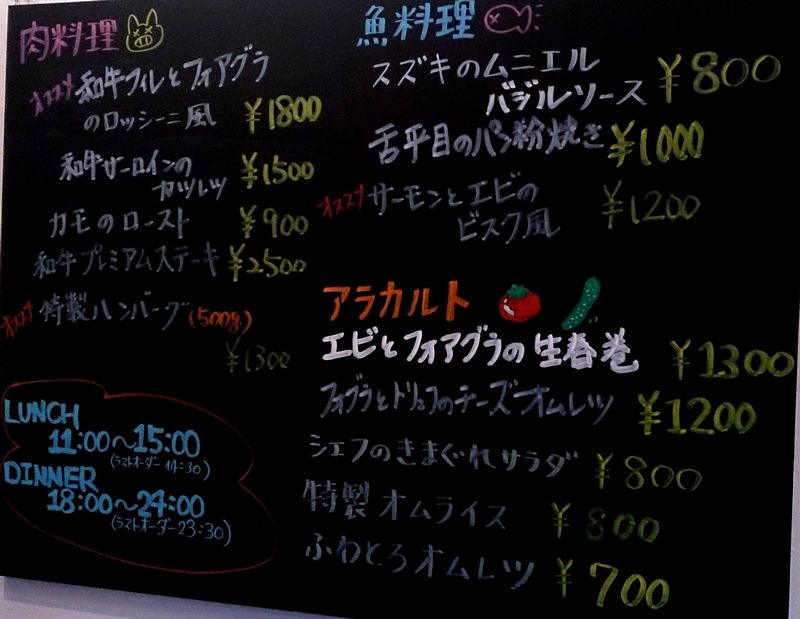 肉料理
オススメ 和牛フィレとフォアグラ
のロッシーニ風 ¥1800
和牛サーロインの
カツレツ ¥1500
カモのロースト ¥900
和牛プレミアムステーキ ¥2500
オススメ 特製ハンバーグ(500g)
¥1300
LUNCH
11:00〜15:00
(ラストオーダー14:30)
DINNER
18:00〜24:00
(ラストオーダー23:30)
魚料理
スズキのムニエル
バジルソース ¥800
舌平目のパン粉焼き ¥1000
オススメ サーモンとエビの
ビスク風 ¥1200
アラカルト
エビとフォアグラの生春巻 ¥1300
フォアグラとトリュフのチーズオムレツ ¥1200
シェフのきまぐれサラダ ¥800
特製オムライス ¥800
ふわとろオムレツ ¥700